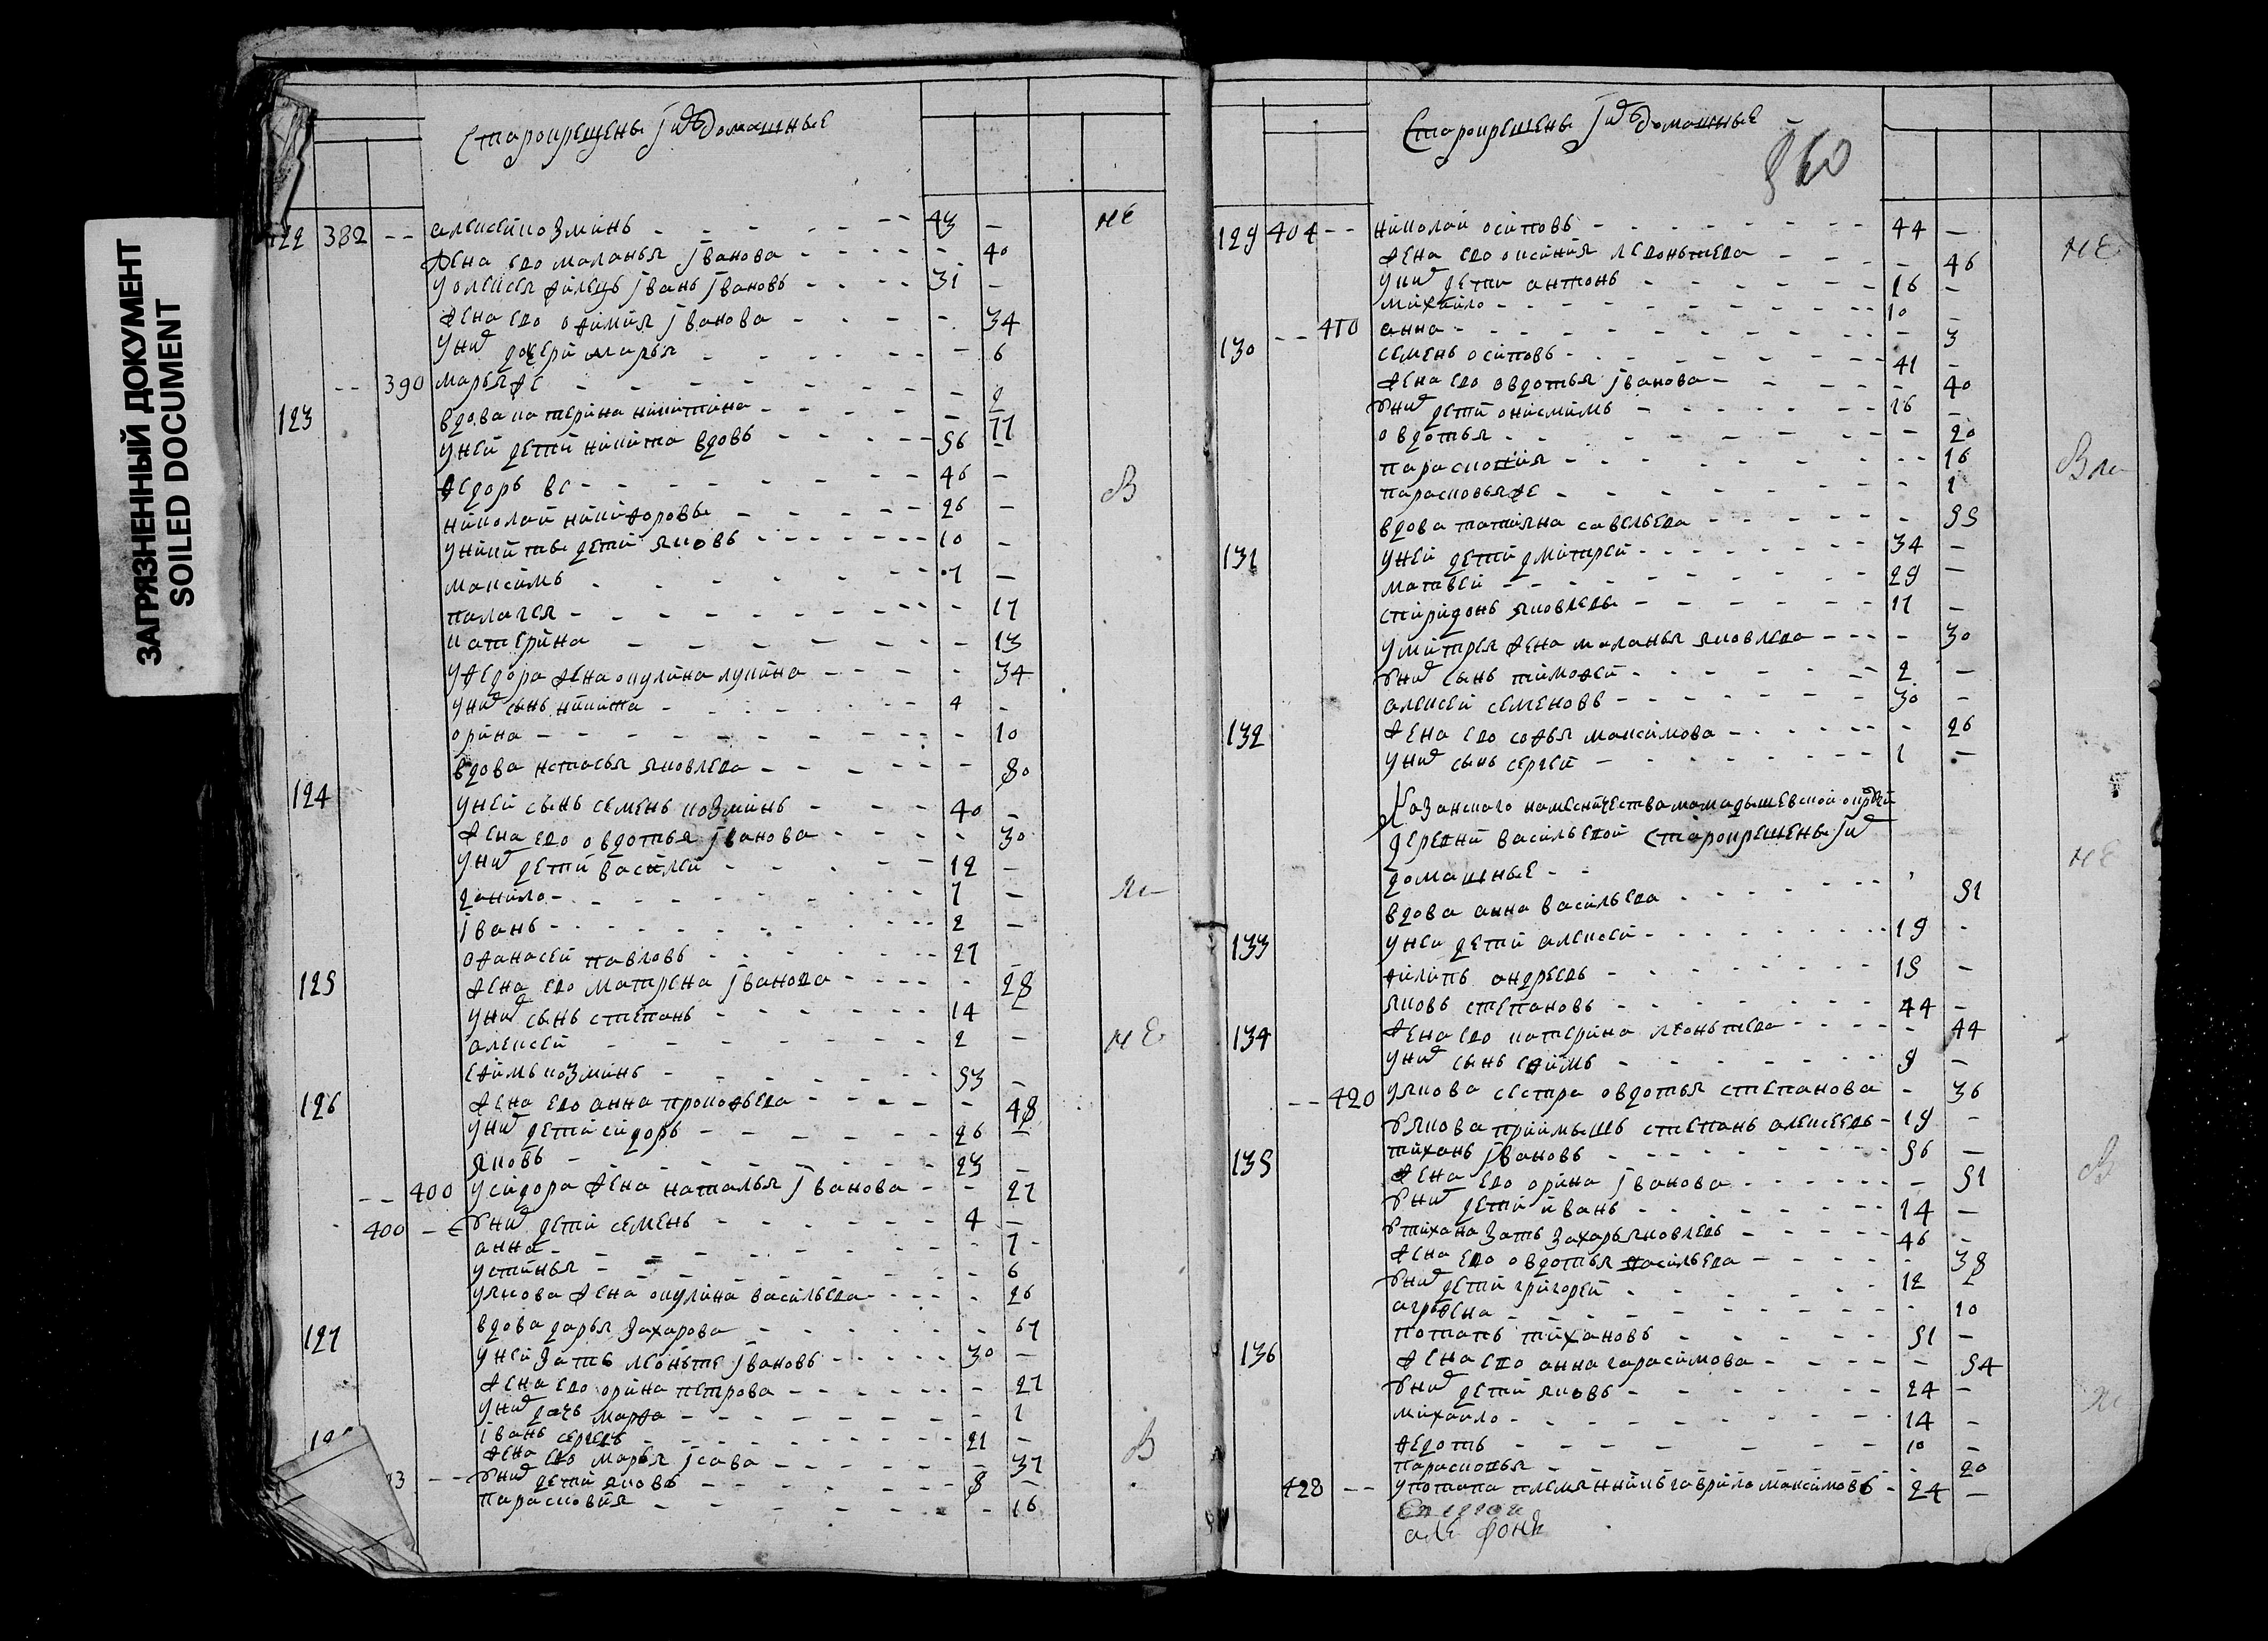 ЗАГРЯЗНЕННЫЙ ДОКУМЕНТ
SOILED DOCUMENT
Старокрещены ихъ домашные
122 382 -- алексей козминъ 43 - не
жена ево маланья иванова - 40
у алексея жилецъ иванъ ивановъ 31 -
жена ево офимия иванова - 34
у них дочери марья - 6
-- 390 марья же - 2
123 вдова катерина никитина - 77
у ней дети никита вдовъ 56 -
федоръ вс 46 -
николай никифоровы 26 - в
у никиты дети яковъ 10 -
максимъ 7 -
палагея - 17
катерина - 13
у федора жена окулина лукина - 34
у них сынъ никита 4 -
орина - 10
вдова настасья яковлева - 80
124 у ней сынъ семенъ козминъ 40 -
жена ево овдотья иванова - 30
у них дети василей 12 -
данило 7 -
иванъ 2 -
офанасей павловъ 27 -
125 жена ево матрена иванова - 28
у них сынъ степанъ 14 -
алексей 2 - не
ефимъ козминъ 53 -
126 жена ево анна прокофьева - 48
у них дети сидоръ 26 -
яковъ 23 -
-- 400 у сидора жена наталья иванова - 27
400 -- у них дети семенъ 4 -
анна - 7
устинья - 6
у якова жена окулина васильева - 26
127 вдова дарья захарова - 67
у ней зять леонтие ивановъ 30 -
жена ево орина петрова - 27
у них дочь марфа - 1
иванъ сергеевъ 21 - в
жена ево марья исава - 37
-- у них дети яковъ 8 -
парасковия - 16
Старокрещены ихъ домашные
860
129 404 -- николай осиповъ 44 - не
жена ево оксиния леонтьева - 46
у них дети антонъ 16 -
михайло 10 -
-- 410 анна - 3
130 семенъ осиповъ 41 -
жена ево овдотья иванова - 40
у них дети онисимъ 16 -
овдотья - 20
парасковия - 16
парасковья же - 1
вдова татияна савельева - 55
131 у ней дети дмитрей 34 -
матвей 29 -
спиридонъ яковлевы 17 -
у митрея жена маланья яковлева - 30
у них сынъ тимофей 2 -
алексей семеновъ 30 -
132 жена ево софья максимова - 26
у них сынъ сергей 1 -
Казанского наместничества мамадышевской округи
деревни васильевой старокрещены их
домашные не
вдова анна васильева - 51
133 у ней дети алексей 19 -
филипъ андреевъ 15 -
яковъ степановъ 44 -
134 жена ево катерина леонтьева - 44
у них сынъ ефимъ 9 -
-- 420 у якова сестра овдотья степанова - 36
у якова приимышъ степанъ алексеевъ 19 -
135 тиханъ ивановъ 56 - в
жена ево орина иванова - 51
у них дети иванъ 14 -
у тихана зять захаръ яковлевъ 46 -
жена ево овдотья васильева - 38
у них дети григорей 12
агрофена - 10
потапъ тихановъ 51 -
136 жена ево анна гарасимова - 54
у них дети яковъ 24 -
михайло 14 -
федотъ 10 -
парасковья - 20
428 -- у потапа племянникъ гаврило максимовъ 24 -